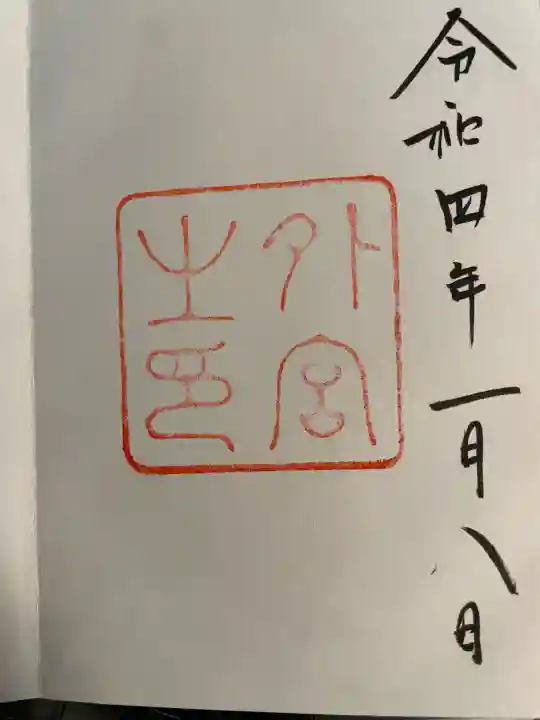 令和四年一月八日
外宮
之印